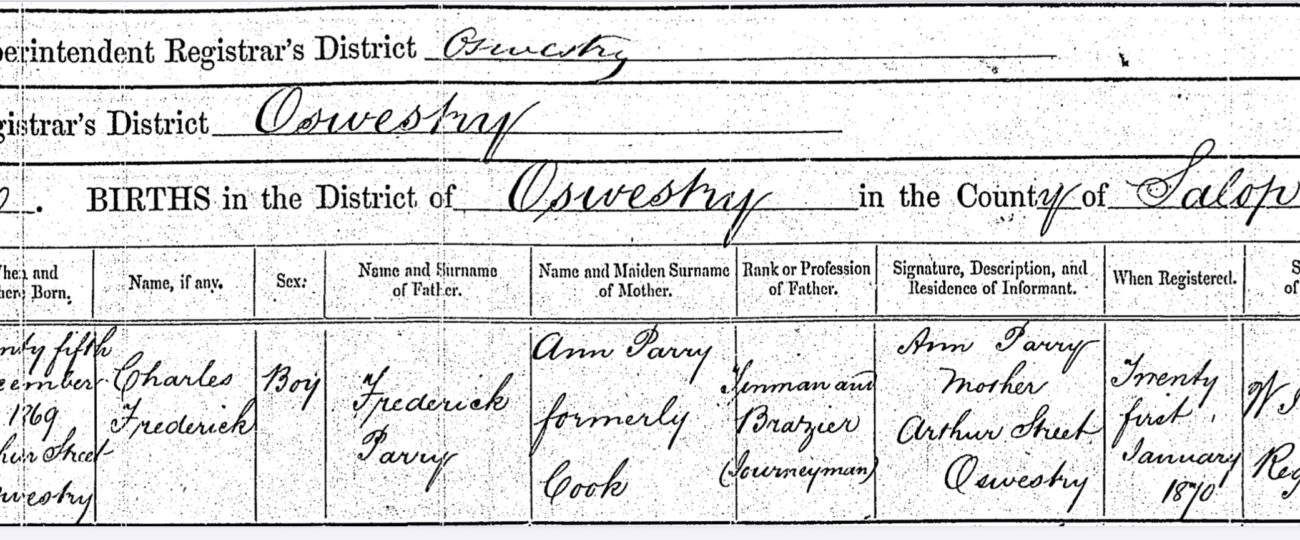 perintendent Registrar's District Oswestry
gistrar's District Oswestry
. BIRTHS in the District of Oswestry in the County of Salop
hen and
here Born.
Name, if any.
Sex.
Name and Surname
of Father.
Name and Maiden Surname
of Mother.
Rank or Profession
of Father.
Signature, Description, and
Residence of Informant.
When Registered.
S
of
nty fifth
cember
1869
hur Street
swestry
Charles
Frederick
Boy
Frederick
Parry
Ann Parry
formerly
Cook
Tinman and
Brazier
(Journeyman)
Ann Parry
Mother
Arthur Street
Oswestry
Twenty
first
January
1870
W
Reg